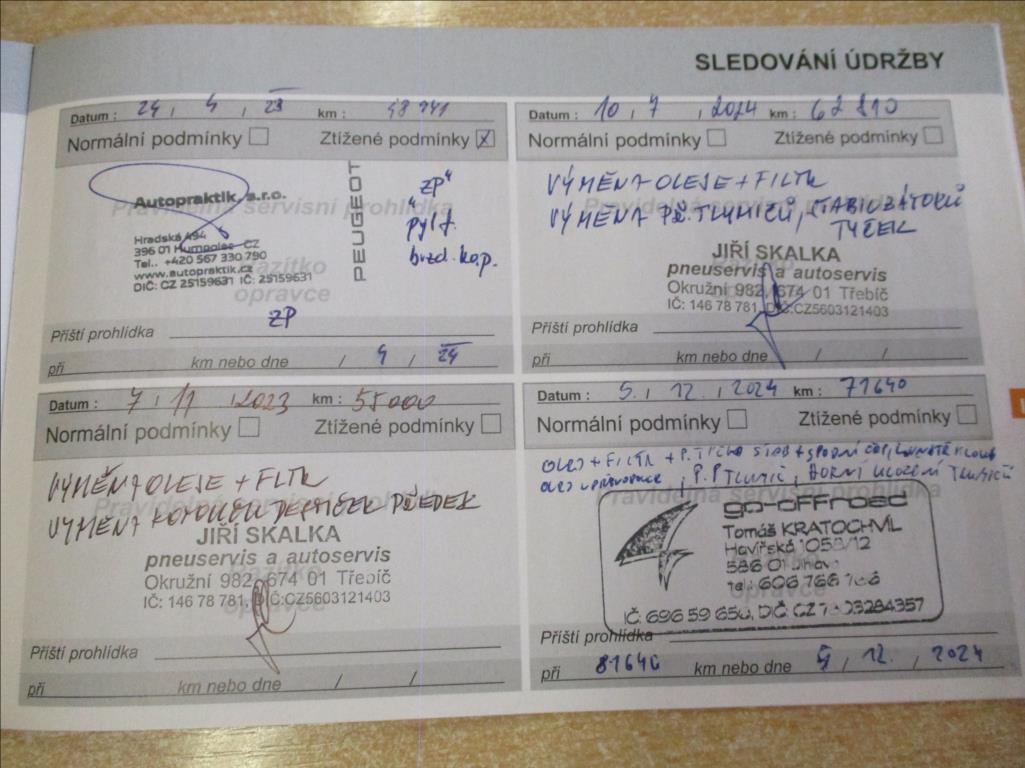 SLEDOVÁNÍ ÚDRŽBY
Datum : 24 , 4 , 23 km : 48 941
Normální podmínky Ztížené podmínky x
Pravidelná servisní prohlídka
Autopraktik, s.r.o.
Hradská 494
396 01 Humpolec CZ
Tel.. +420 567 330 790
www.autopraktik.cz
DIČ: CZ 25159631 IČ: 25159631
PEUGEOT
"ZP"
pyl f.
brzd. kap.
Razítko
opravce
Příští prohlídka ZP
při km nebo dne / 4 / 24
Datum : 10 , 7 , 2024 km : 62 810
Normální podmínky Ztížené podmínky
VÝMĚNA OLEJE + FILTR
VÝMĚNA PŘ. TLUMIČŮ, STABILIZÁTORŮ
TYČEK
Pravidelná servisní prohlídka
JIŘÍ SKALKA
pneuservis a autoservis
Okružní 982, 674 01 Třebíč
IČ: 146 78 781, DIČ:CZ5603121403
Příští prohlídka
při km nebo dne / /
Datum : 7 , 11 , 2023 km : 55000
Normální podmínky Ztížené podmínky
VÝMĚNA OLEJE + FILTR
VÝMĚNA KOTOUČŮ DESTIČEK PŘEDEK
Pravidelná servisní prohlídka
JIŘÍ SKALKA
pneuservis a autoservis
Okružní 982, 674 01 Třebíč
IČ: 146 78 781, DIČ:CZ5603121403
Razítko
opravce
Příští prohlídka
při km nebo dne / /
Datum : 5. , 12. , 2024 km : 71640
Normální podmínky Ztížené podmínky
OLEJ + FILTR + P. STAB + SPODNÍ ČEP,
OLEJ , P.P TLUMIČ, HORNÍ ULOŽENÍ TLUMIČŮ
Pravidelná servisní prohlídka
go-offroad
Tomáš KRATOCHVÍL
Havířská 1058/12
586 01 Jihlava
tel.: 606 766
IČ: 696 59 656, DIČ: CZ 7603284357
Příští prohlídka
při 81640 km nebo dne 5 / 12. / 2024